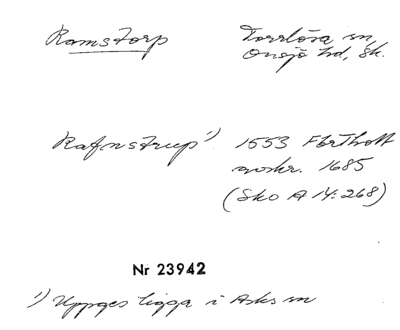 Ramstorp Torrlösa sn,
Onsjö hd, Sk.
Rafnstrup¹⁾ 1553 Förtholt
avskr. 1685
(Sko A 14:268)
Nr 23942
¹⁾ Uppges ligga i Asks sn